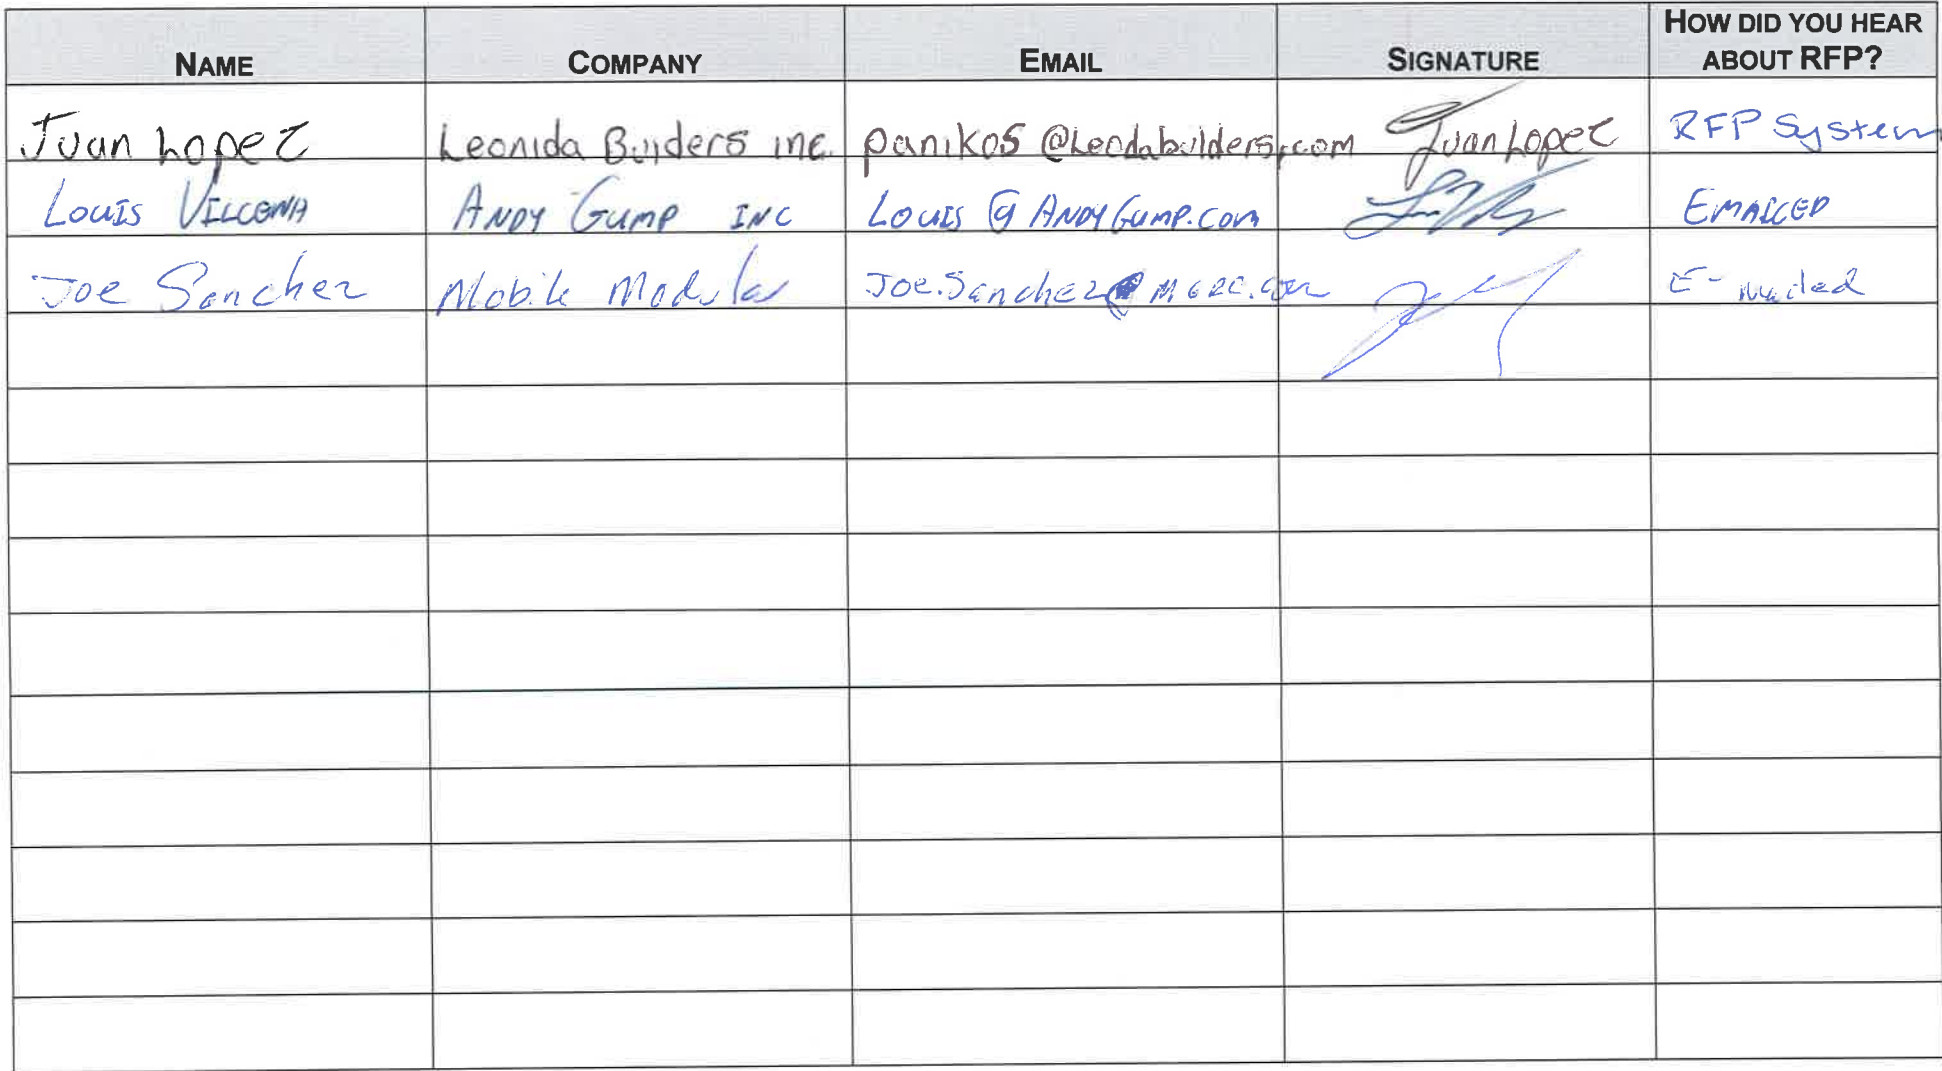 NAME COMPANY EMAIL SIGNATURE HOW DID YOU HEAR ABOUT RFP?
Juan Lopez Leonida Buiders inc. panikos @Leodabuilders.com Juan Lopez RFP System
Louis ANDY GUMP INC Louis @ ANDYGUMP.com EMAILED
Joe Sanchez Mobile Modular Joe.Sanchez@ E-mailed